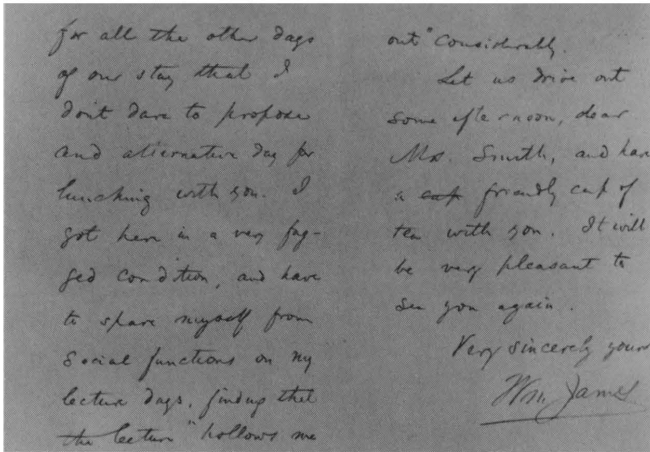 for all the other days
of our stay that I
don't dare to propose
and alternative day for
lunching with you. I
got here in a very fag-
ged condition, and have
to spare myself from
social functions on my
lecture days, finding that
the lecture "hollows me
out" considerably.
Let us drive out
some afternoon, dear
Mrs. Smith, and have
a cup friendly cup of
tea with you. It will
be very pleasant to
see you again.
Very sincerely yours
Wm. James